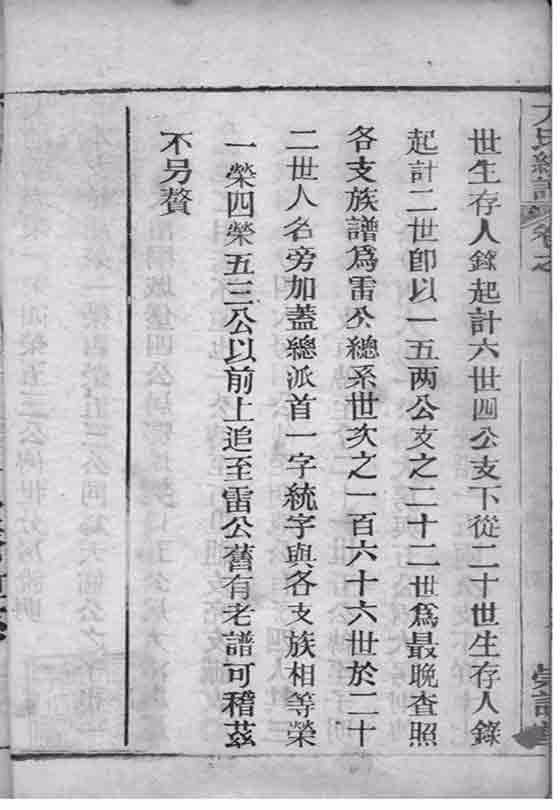 方氏總譜 卷之
世生存人錄起計六世四公支下從二十世生存人錄
起計二世卽以一五两公支之二十二世爲最晚查照
各支族譜爲雷公總系世次之一百六十六世於二十
二世人名旁加蓋總派首一字統字與各支族相等榮
一榮四榮五三公以前上追至雷公舊有老譜可稽茲
不另贅